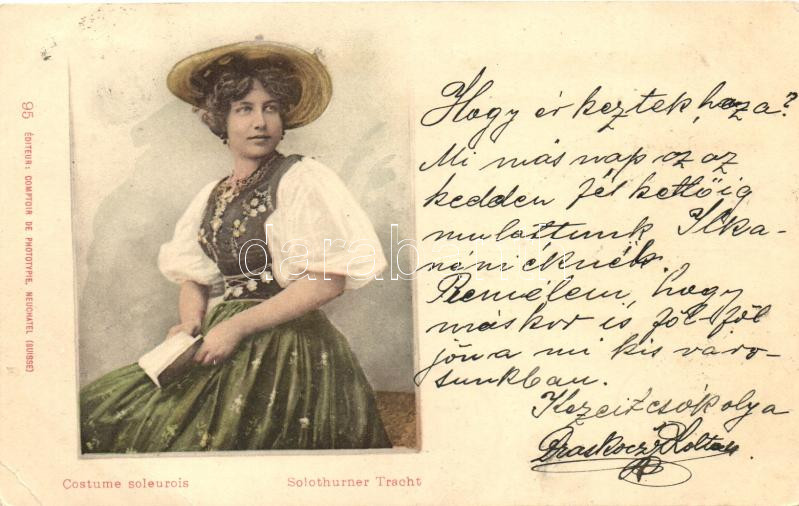 95 ÉDITEUR: COMPTOIR DE PHOTOTYPIE, NEUCHATEL (SUISSE)
Costume soleurois Solothurner Tracht
darabanth
Hogy érkeztek haza?
Mi másnap az az
kedden fél kettőig
mulattunk Ilka-
néniéknék.
Remélem, hogy
máskor is föl-föl
jön a mi kis váro-
sunkban.
Kezeit csókolja
Zoltán